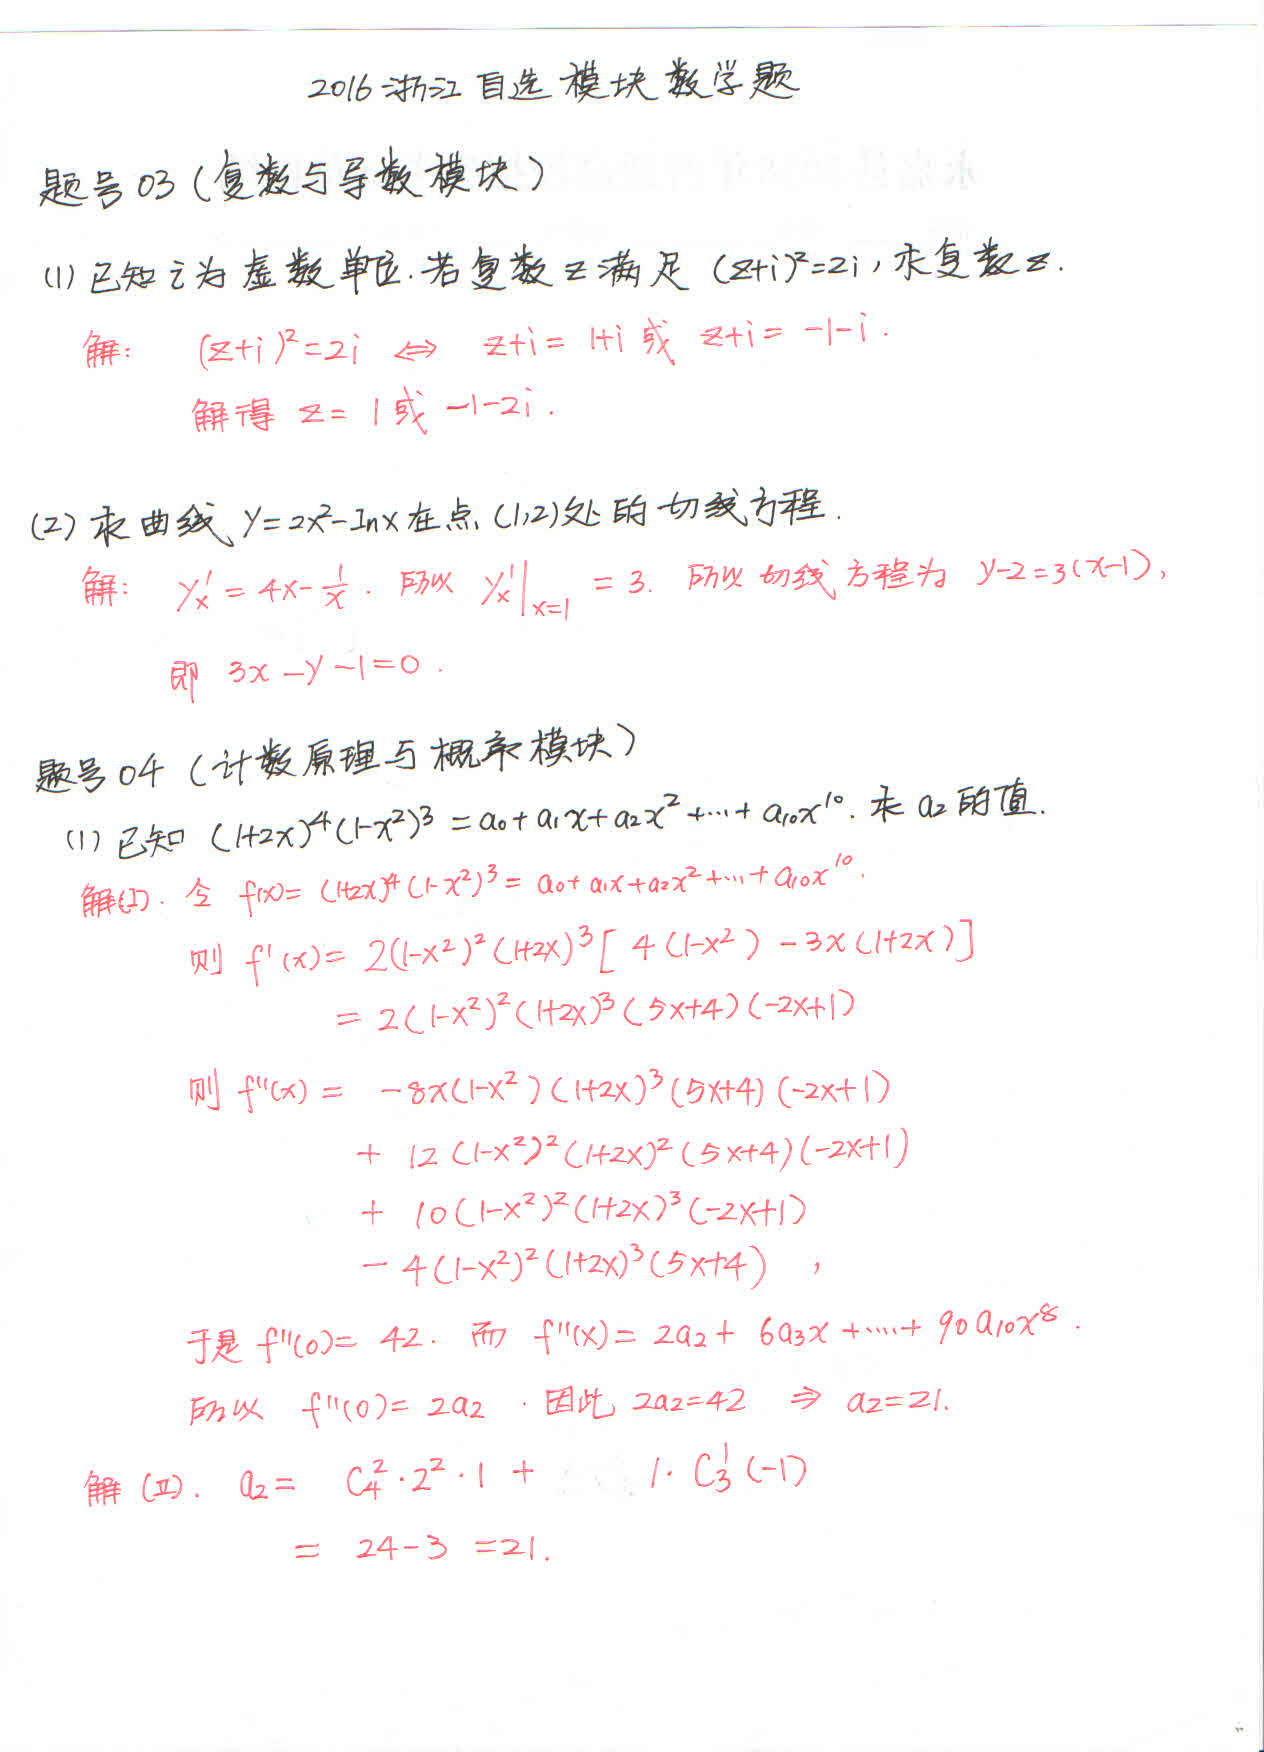 2016浙江自选模块数学题
题号03(复数与导数模块)
(1)已知i为虚数单位.若复数z满足(z+i)²=2i,求复数z.
解: (z+i)²=2i ⇔ z+i=1+i或 z+i=-1-i.
解得 z= 1或 -1-2i.
(2)求曲线 y=2x²-lnx在点(1,2)处的切线方程.
解: y'ₓ=4x-1/x. 所以 y'ₓ|ₓ₌₁=3. 所以切线方程为 y-2=3(x-1),
即 3x-y-1=0.
题号04(计数原理与概率模块)
(1)已知 (1+2x)⁴(1-x²)³=a₀+a₁x+a₂x²+…+a₁₀x¹⁰.求a₂的值.
解(I). 令 f(x)=(1+2x)⁴(1-x²)³=a₀+a₁x+a₂x²+…+a₁₀x¹⁰.
则 f'(x)=2(1-x²)²(1+2x)³[4(1-x²)-3x(1+2x)]
=2(1-x²)²(1+2x)³(5x+4)(-2x+1)
则 f''(x)= -8x(1-x²)(1+2x)³(5x+4)(-2x+1)
+ 12(1-x²)²(1+2x)²(5x+4)(-2x+1)
+ 10(1-x²)²(1+2x)³(-2x+1)
- 4(1-x²)²(1+2x)³(5x+4) ,
于是 f''(0)=42. 而 f''(x)=2a₂+6a₃x+……+90a₁₀x⁸.
所以 f''(0)=2a₂ .因此 2a₂=42 ⇒ a₂=21.
解(II). a₂= C₄²·2²·1 + 1·C₃¹(-1)
= 24-3 =21.